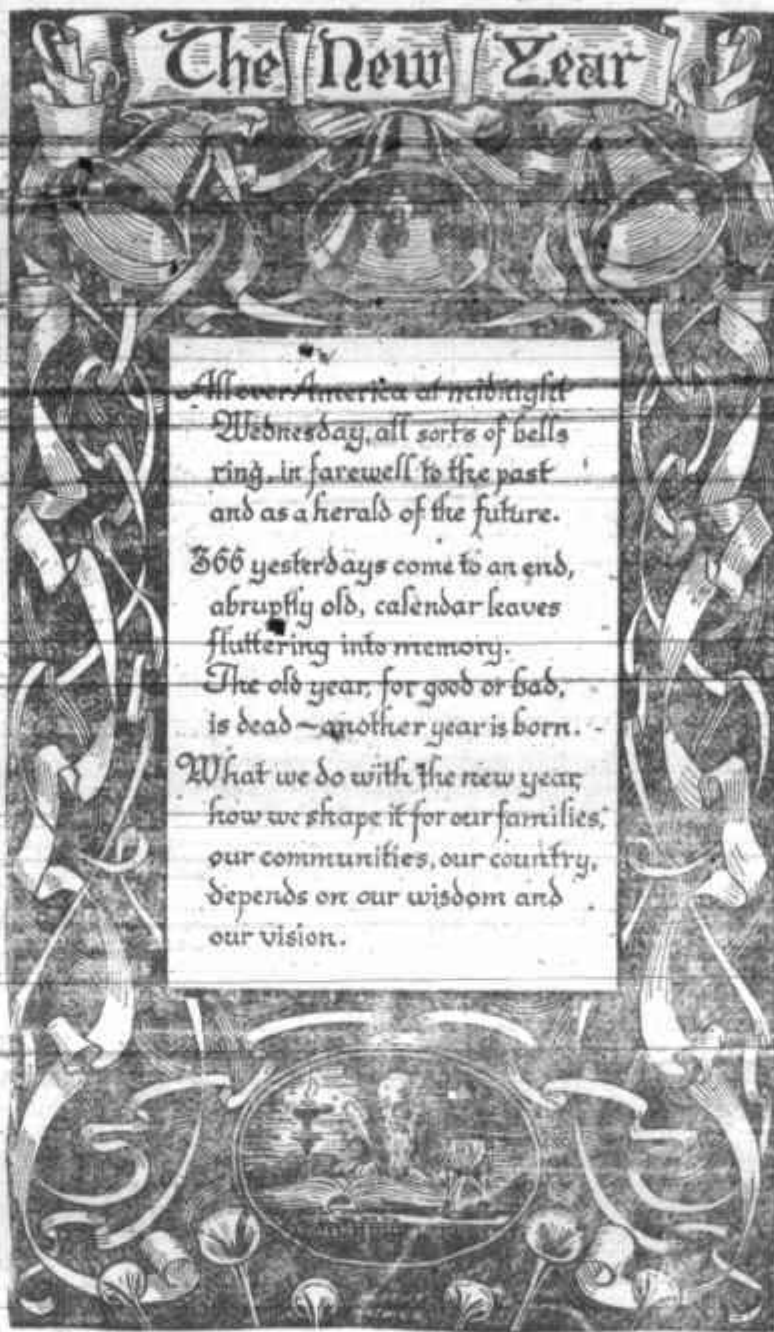 The New Year
All over America at midnight
Wednesday, all sorts of bells
ring, in farewell to the past
and as a herald of the future.
366 yesterdays come to an end,
abruptly old, calendar leaves
fluttering into memory.
The old year, for good or bad,
is dead — another year is born.
What we do with the new year,
how we shape it for our families,
our communities, our country,
depends on our wisdom and
our vision.